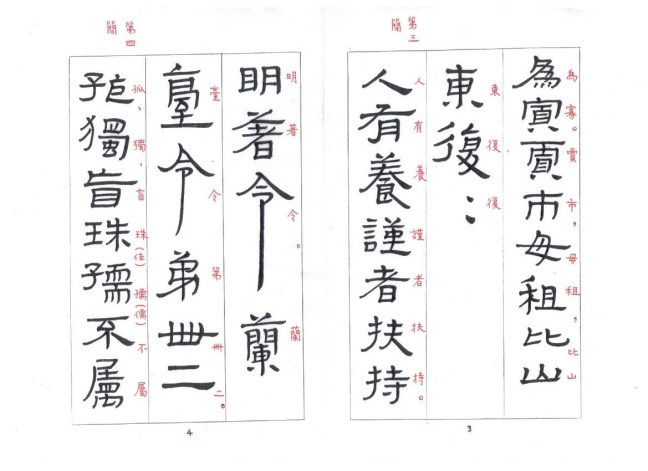 第三簡
為寅賈市毋租比山
為寡。賈市，毋租，比山
東復：
東復復
人有養謹者扶持
人有養謹者扶持。
3
第四簡
明著令蘭
明著令。蘭
臺令第卌二
臺令第卌二。
孤獨盲珠孺不屬
孤，獨，盲珠(侏)孺(儒)不屬
4